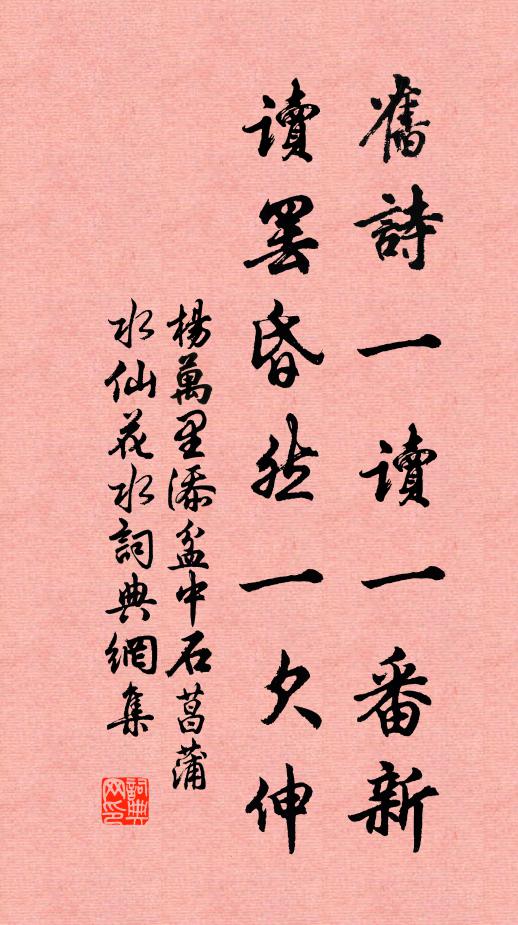 舊詩一讀一番新
讀罷昏然一欠伸
楊萬里添盆中石菖蒲
水仙花水詞典網集
詞典
网印